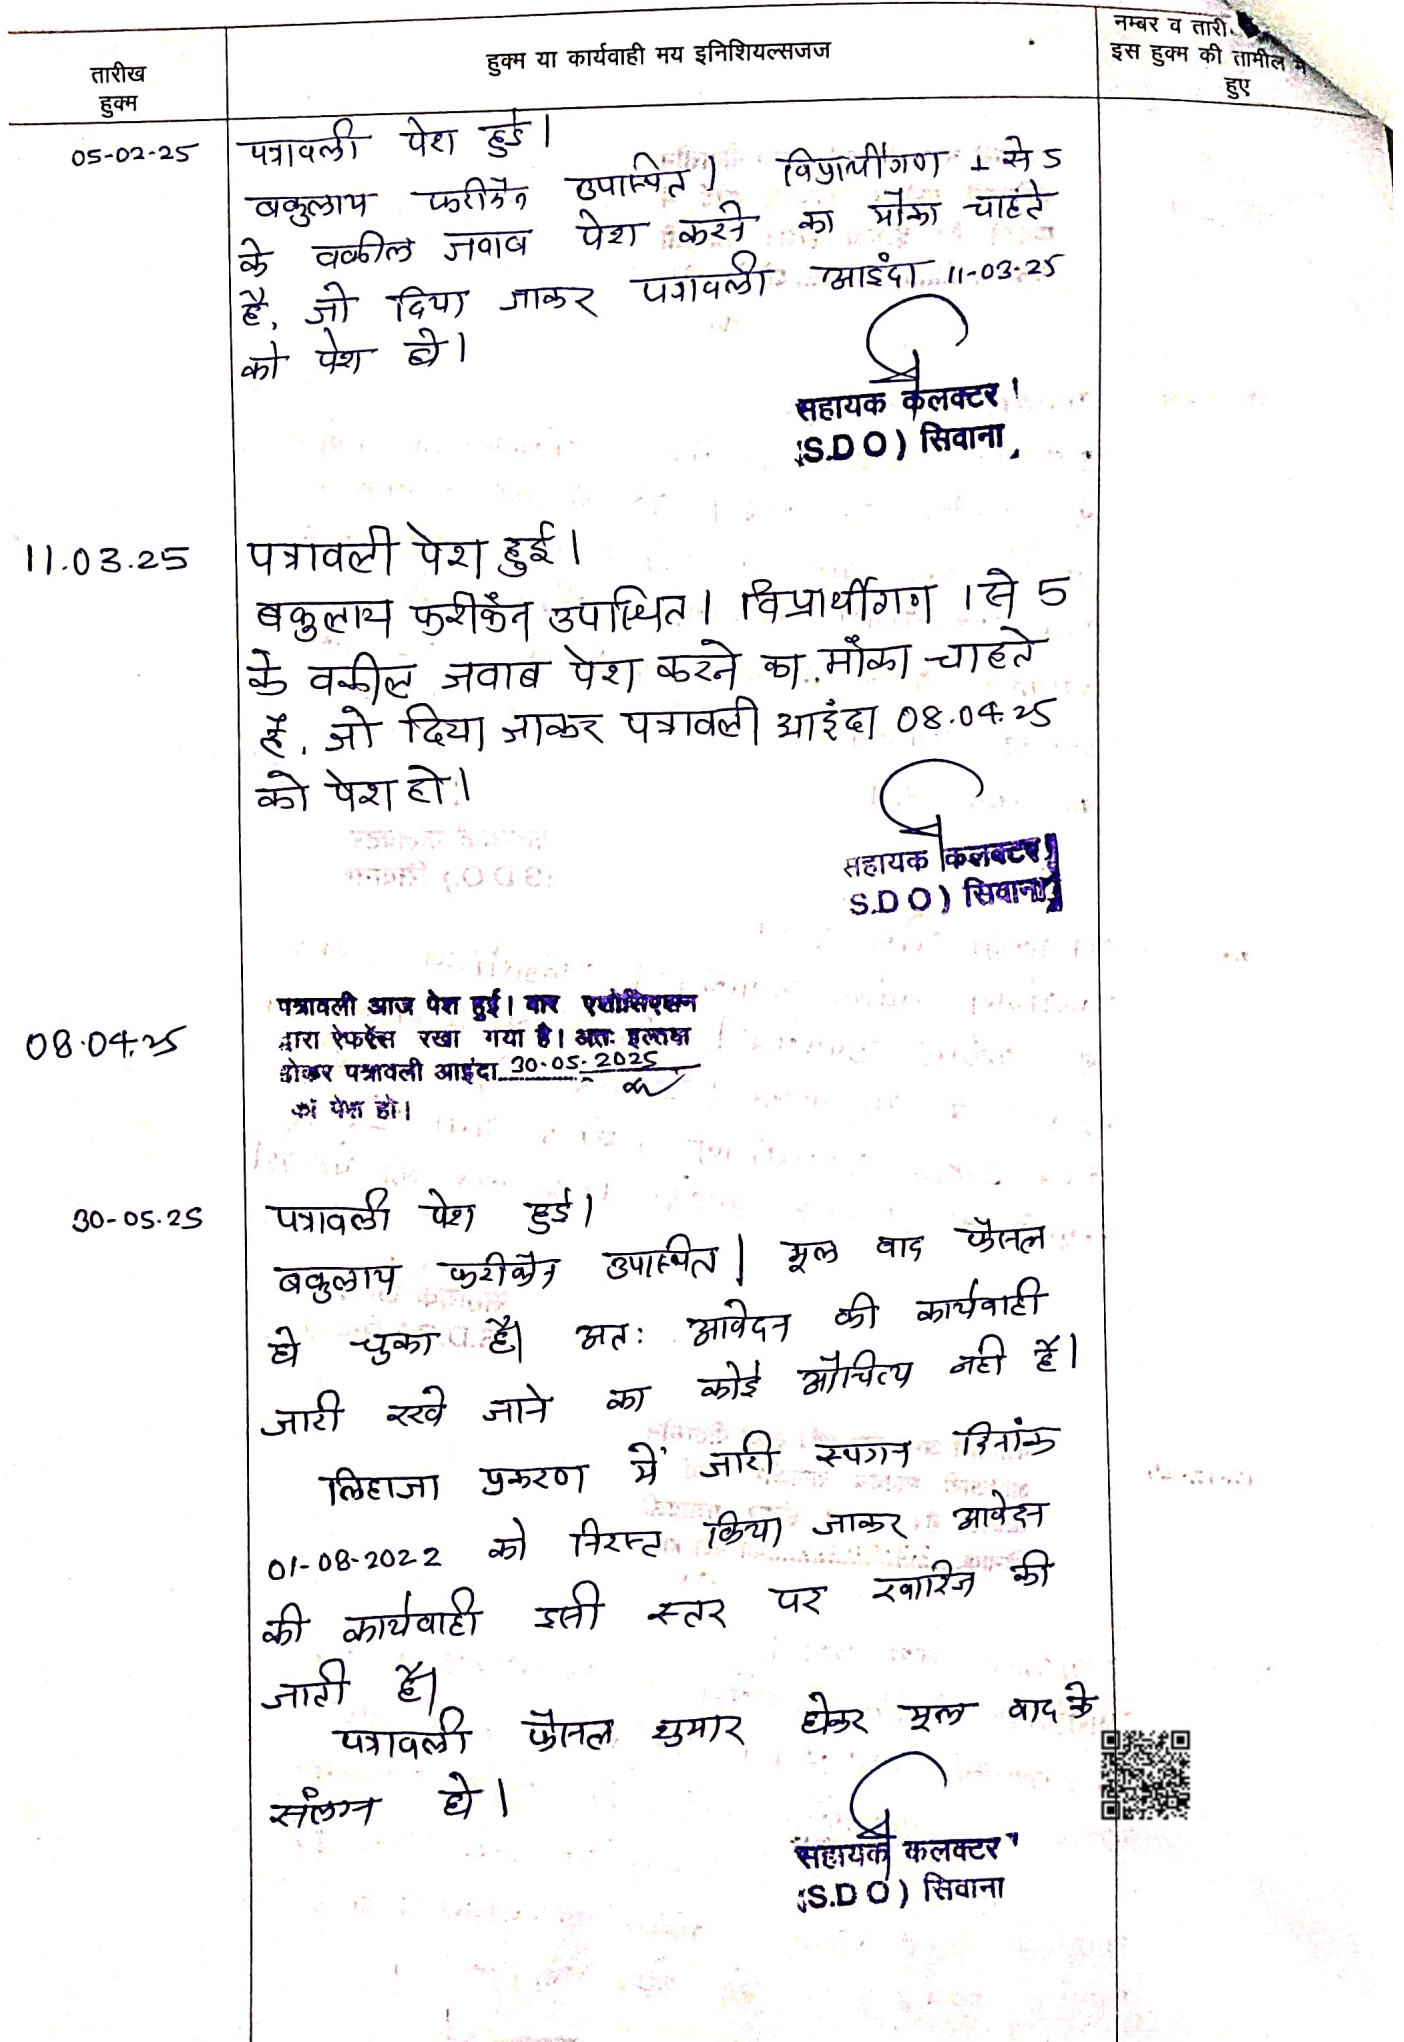 तारीख
हुक्म
हुक्म या कार्यवाही मय इनिशियल्सजज
नम्बर व तारी
इस हुक्म की तामील में
हुए
05-02-25
पत्रावली पेश हुई।
वकुलाय फरीकैन उपास्थित। विप्रार्थीगण 1 से 5
के वकील जवाब पेश करने का मौका चाहते
है, जो दिया जाकर पत्रावली आइंदा 11-03-25
को पेश हो।
सहायक कलक्टर
(S.D O) सिवाना
11.03.25
पत्रावली पेश हुई।
बकुलाय फरीकैन उपास्थित। विप्रार्थीगण 1 से 5
के वकील जवाब पेश करने का मौका चाहते
है, जो दिया जाकर पत्रावली आइंदा 08.04.25
को पेश हो।
सहायक कलक्टर
S.D O) सिवाना
08.04.25
पत्रावली आज पेश हुई। बार एसोसिएशन
द्वारा रेफरेंस रखा गया है। अतः इल्तवा
होकर पत्रावली आइंदा 30-05-2025
को पेश हो।
30-05-25
पत्रावली पेश हुई।
बकुलाय फरीकैन उपास्थित। मूल वाद फैसल
हो चुका है। अतः आवेदन की कार्यवाही
जारी रखे जाने का कोई औचित्य नही है।
लिहाजा प्रकरण में जारी स्थगन दिनांक
01-08-2022 को निरस्त किया जाकर आवेदन
की कार्यवाही इसी स्तर पर खारिज की
जाती है।
पत्रावली फैसल शुमार होकर मूल वाद के
संलग्न हो।
सहायक कलक्टर
(S.D O) सिवाना